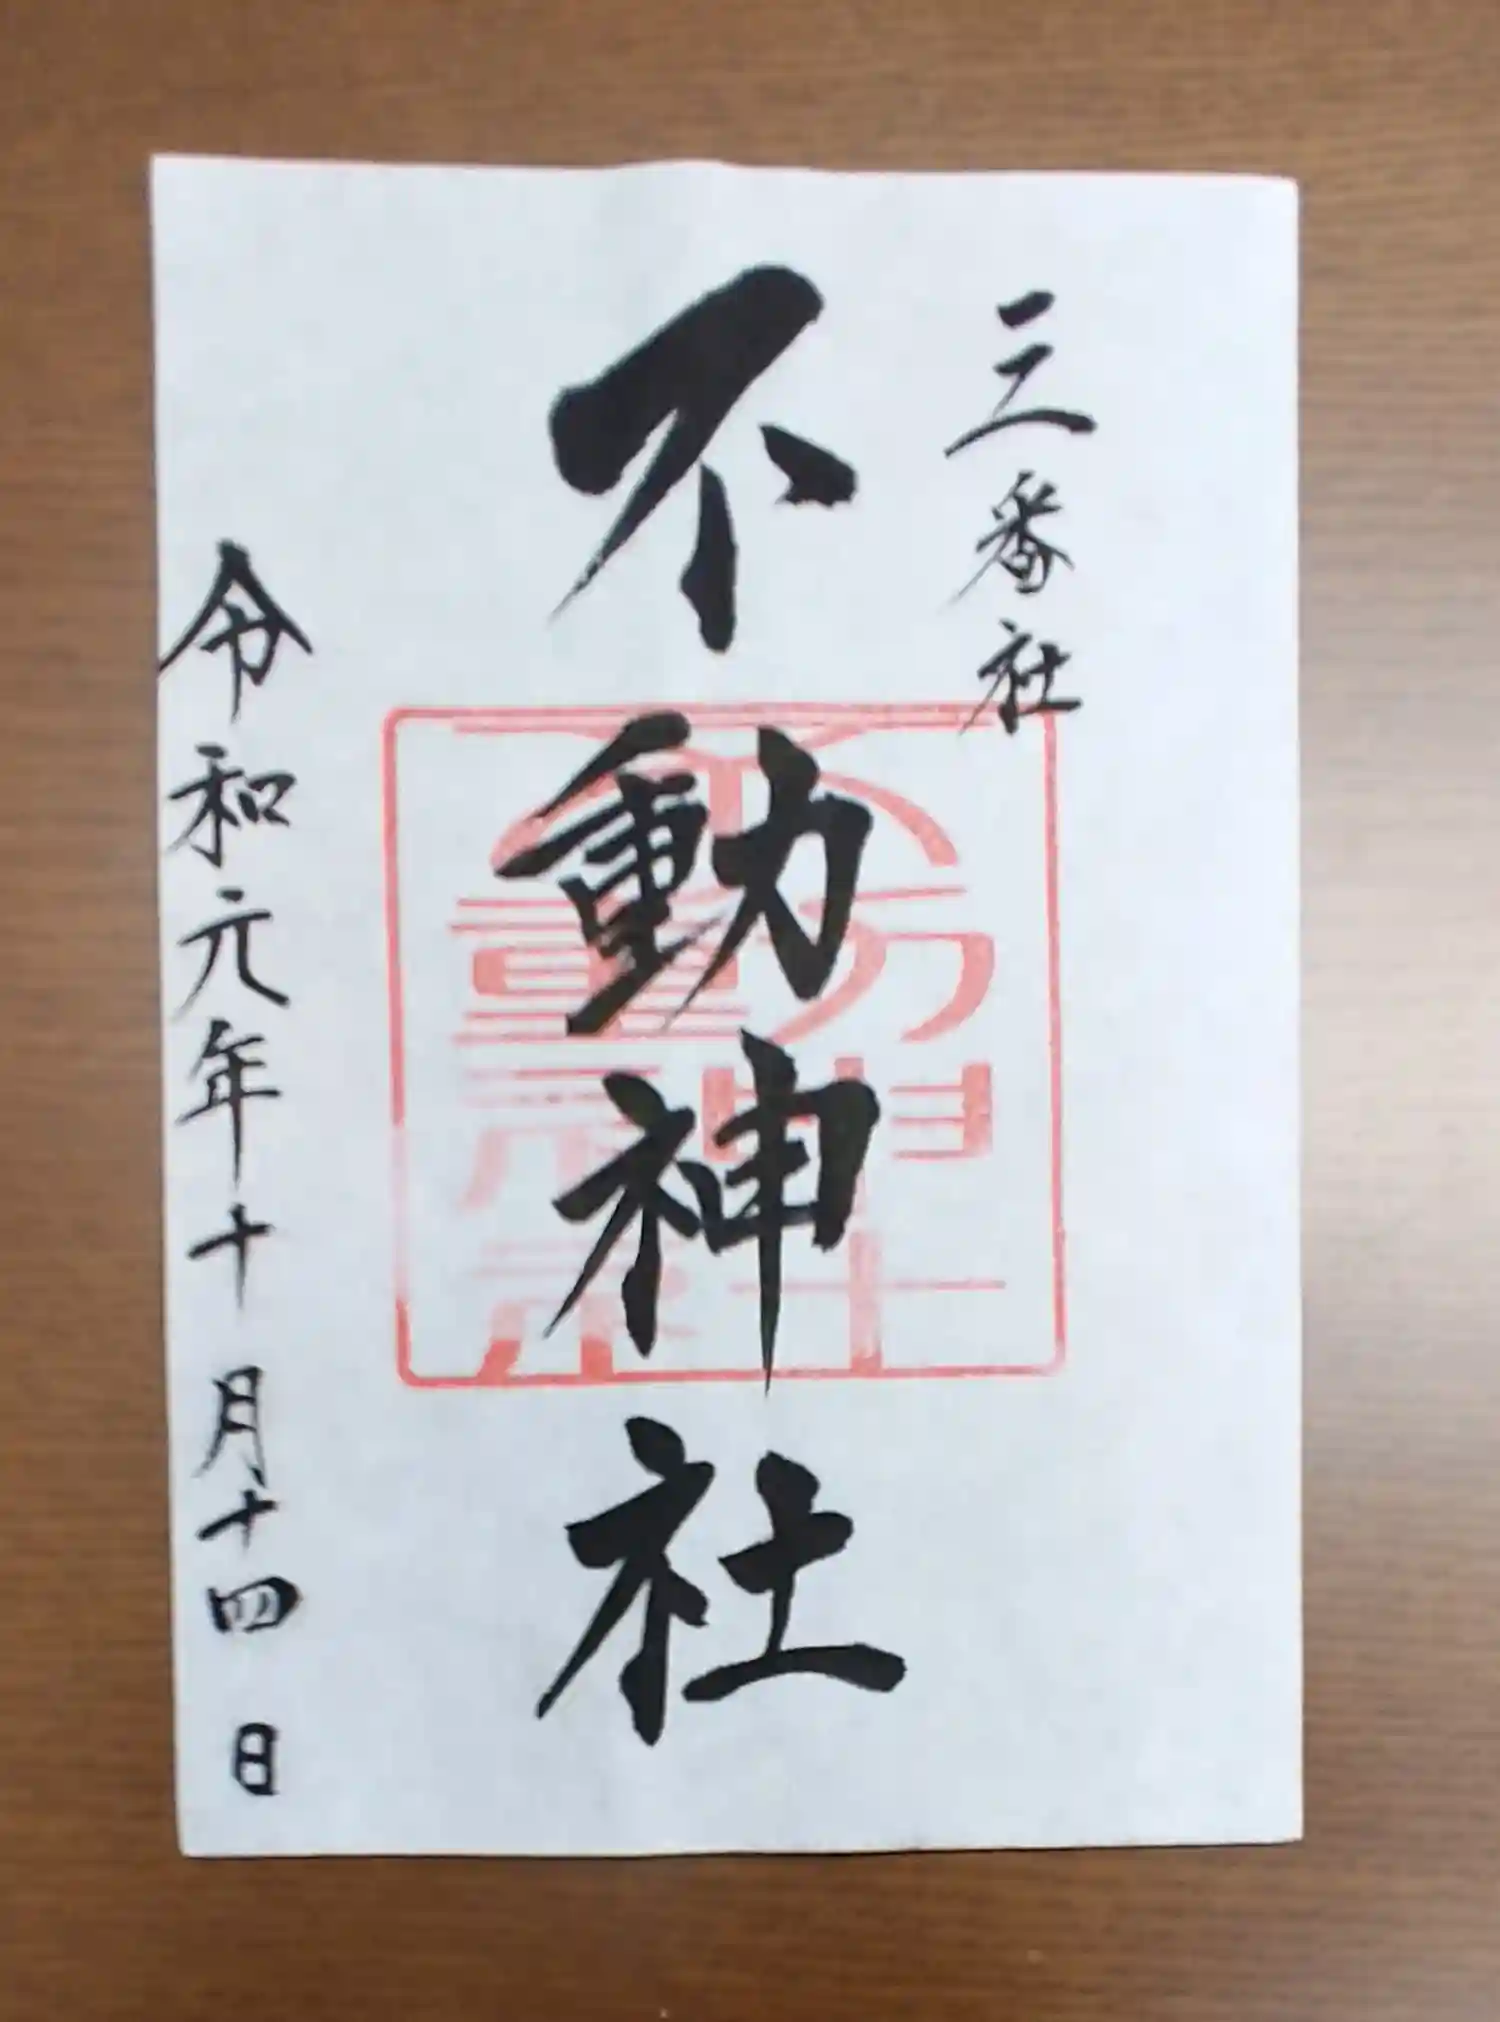 三番社
不動神社
不動神社
令和元年十月十四日